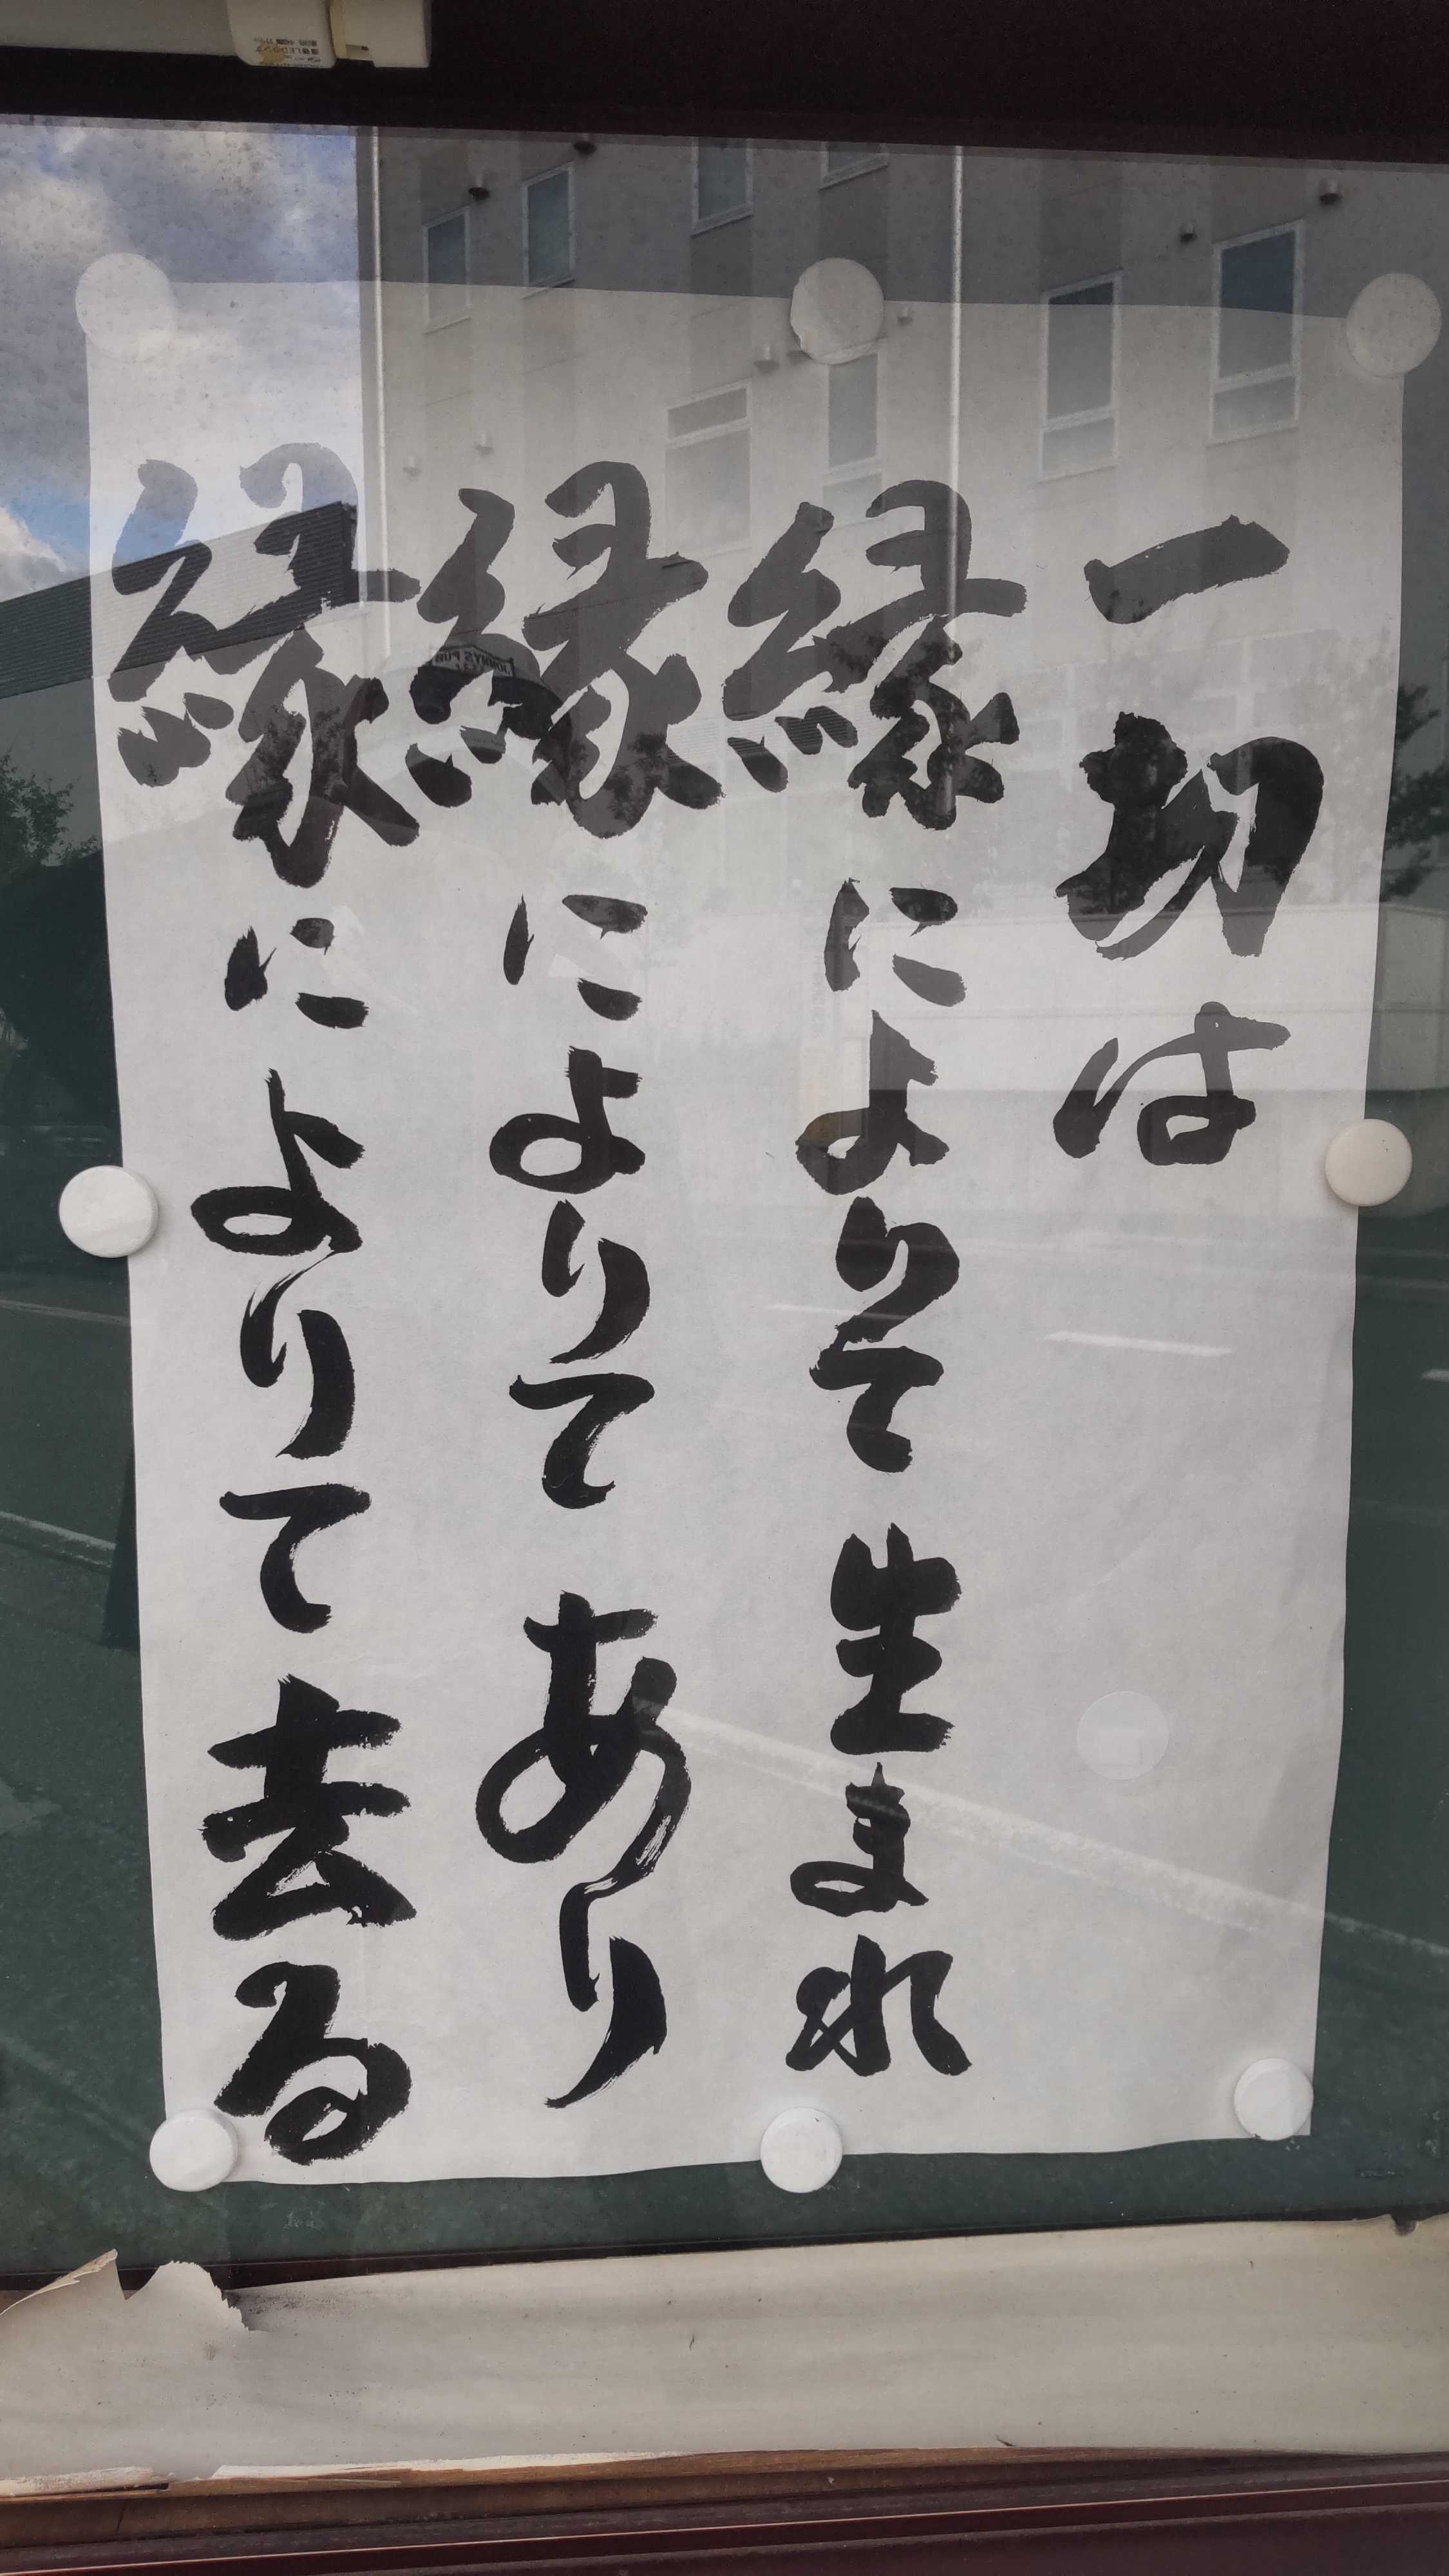 一切は
縁によりて生まれ
縁によりてあり
縁によりて去る